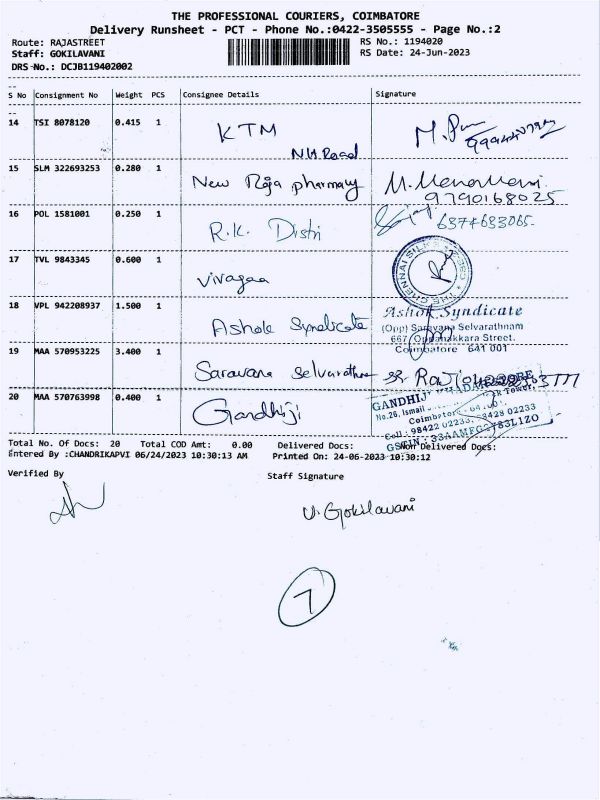 THE PROFESSIONAL COURIERS, COIMBATORE
Delivery Runsheet - PCT - Phone No.:0422-3505555 - Page No.:2
Route: RAJASTREET
RS No.: 1194020
Staff: GOKILAVANI
RS Date: 24-Jun-2023
DRS No.: DCJB119402002
S No Consignment No Weight PCS Consignee Details Signature
14 TSI 8078120 0.415 1 KTM
NH Road
M.
15 SLM 322693253 0.280 1 New Raja pharmacy
9790168025
16 POL 1581001 0.250 1 R.K. Distri
6374633065
17 TVL 9843345 0.600 1 vivagaa
THE CHENNAI SILKS
18 VPL 942208937 1.500 1 Ashok Syndicate
Ashok Syndicate
(Opp) Saravana Selvarathnam
667, Oppanakkara Street.
Coimbatore 641 001
19 MAA 570953225 3.400 1 Saravana Selvarathna
20 MAA 570763998 0.400 1 Gandhiji
GANDHIJI
No.26, Ismail
Tower,
Coimbatore
Cell : 98422 02233, 98428 02233
GSTIN :
Total No. Of Docs: 20 Total COD Amt: 0.00 Delivered Docs: Non Delivered Docs:
Entered By :CHANDRIKAPVI 06/24/2023 10:30:13 AM Printed On: 24-06-2023 10:30:12
Verified By
Staff Signature
V. Gokilavani
7